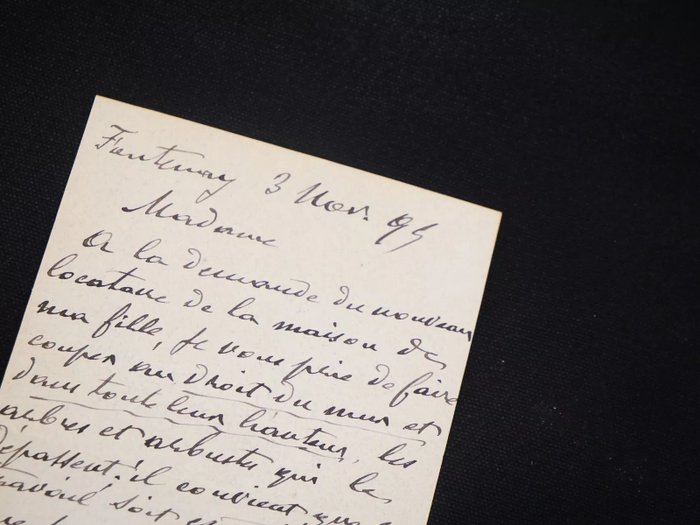 Fontenay 3 Nov. 95
Madame
A la demande du nouveau
locataire de la maison de
ma fille, je vous prie de faire
couper au droit du mur et
dans toute leur hauteur, les
arbres et arbustes qui le
dépassent; il convient que
travail soit